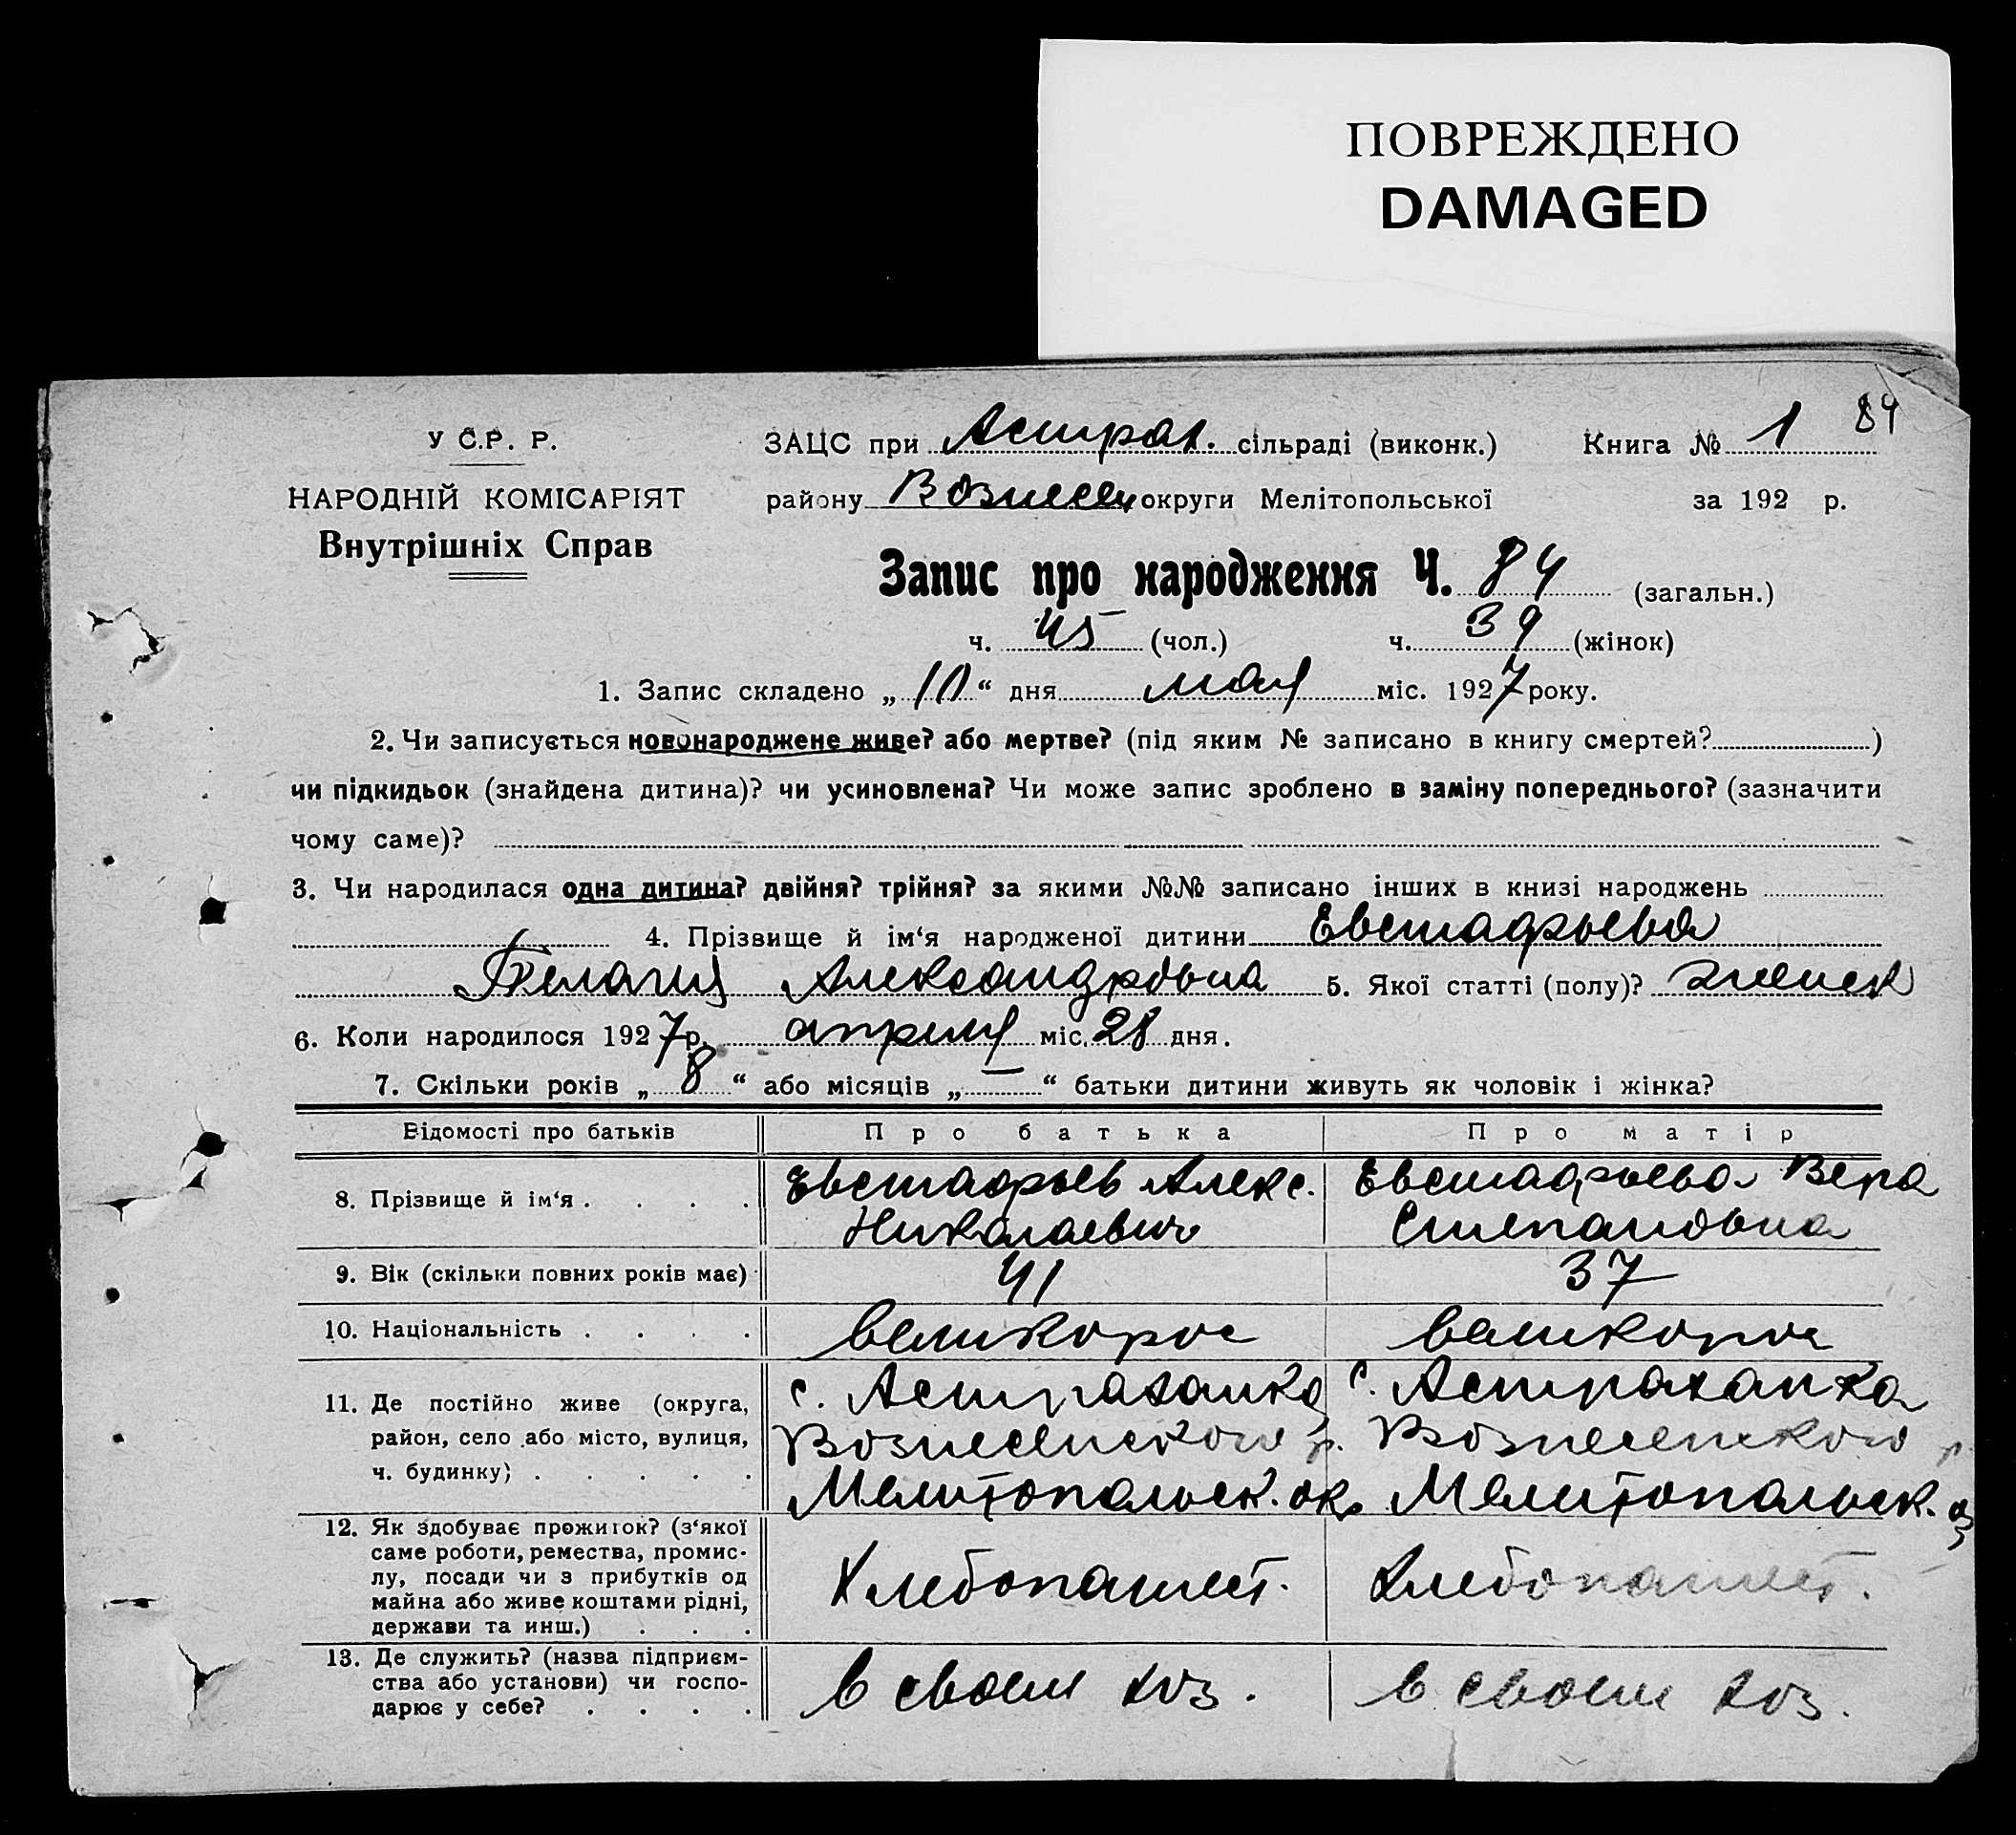 ПОВРЕЖДЕНО
DAMAGED
84
У С.Р. Р.
НАРОДНІЙ КОМІСАРІЯТ
Внутрішніх Справ
ЗАЦС при Астрах. сільраді (виконк.) Книга № 1
району Вознесен округи Мелітопольської за 192 р.
Запис про народження Ч. 84 (загальн.)
ч. 45 (чол.) ч. 39 (жінок)
1. Запис складено „ 10 “ дня мая міс. 1927 року.
2. Чи записується новонароджене живе? або мертве? (під яким № записано в книгу смертей? )
чи підкидьок (знайдена дитина)? чи усиновлена? Чи може запис зроблено в заміну попереднього? (зазначити
чому саме)?
3. Чи народилася одна дитина? двійня? трійня? за якими №№ записано інших в книзі народжень
4. Прізвище й ім‘я народженої дитини Евстафьева
Пелагия Александровна 5. Якої статті (полу)? женск
6. Коли народилося 1927 р. апреля міс. 28 дня.
7. Скільки років „ 8 “ або місяців „ — “ батьки дитини живуть як чоловік і жінка?
Відомості про батьків Про батька Про матір
8. Прізвище й ім‘я . . . . Евстафьев Алекс. Евстафьева Вера
Николаевич Степановна
9. Вік (скільки повних років має) 41 37
10. Національність . . . . великорос великорос
11. Де постійно живе (округа, с. Астраханка с. Астраханка
район, село або місто, вулиця, Вознесенского р. Вознесенского р.
ч. будинку) . . . . . Мелитопольск. ок. Мелитопольск. ок
12. Як здобуває прожиток? (з‘якої
саме роботи, ремества, промис-
лу, посади чи з прибутків од Хлебопашест. Хлебопашест.
майна або живе коштами рідні,
держави та инш.) . . .
13. Де служить? (назва підприєм-
ства або установи) чи госпо- в своем хоз. в своем хоз.
дарює у себе? . . . .